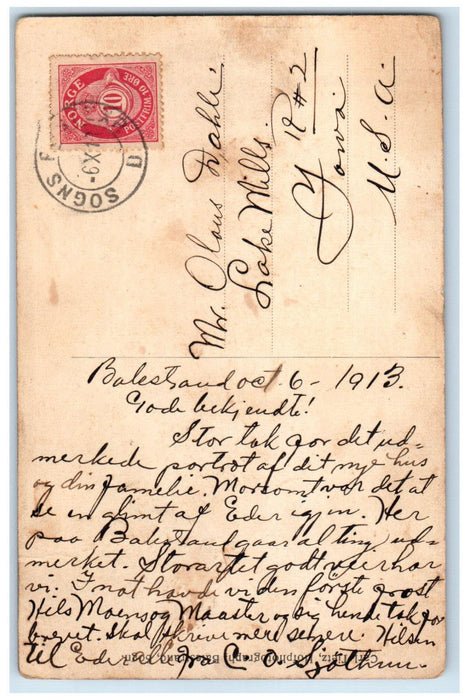 NORGE
POSTFRIM
10 ØRE
10
SOGNS
-6 X 1
D
Mr. Olaus Dahle.
Lake Mills.
R # 2
Iowa
U. S. A.
Balestrand oct. 6 - 1913.
Gode bekjendte!
Stor tak for det ud=
merkede portrot af dit nye hus
og din familie. Morsomt var det at
se en glimt af Eder igjen. Her
paa Balestrand gaar alting ud=
merket. Storartet godt veer har
vi. I nat havde vi den förste frost
Hils Moens og og sig hende tak for
brevet. Skal skrive mere senere. Hilsen
til Eder alle fra C. O.